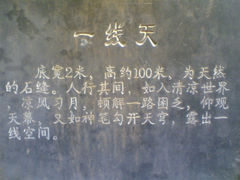 一线天
底宽2米，高约100米、为天然
的石缝。人行其间，如入清凉世界
，凉风习月，顿解一路困乏，仰观
天幕，又如神笔勾开天穹，露出一
线空间。